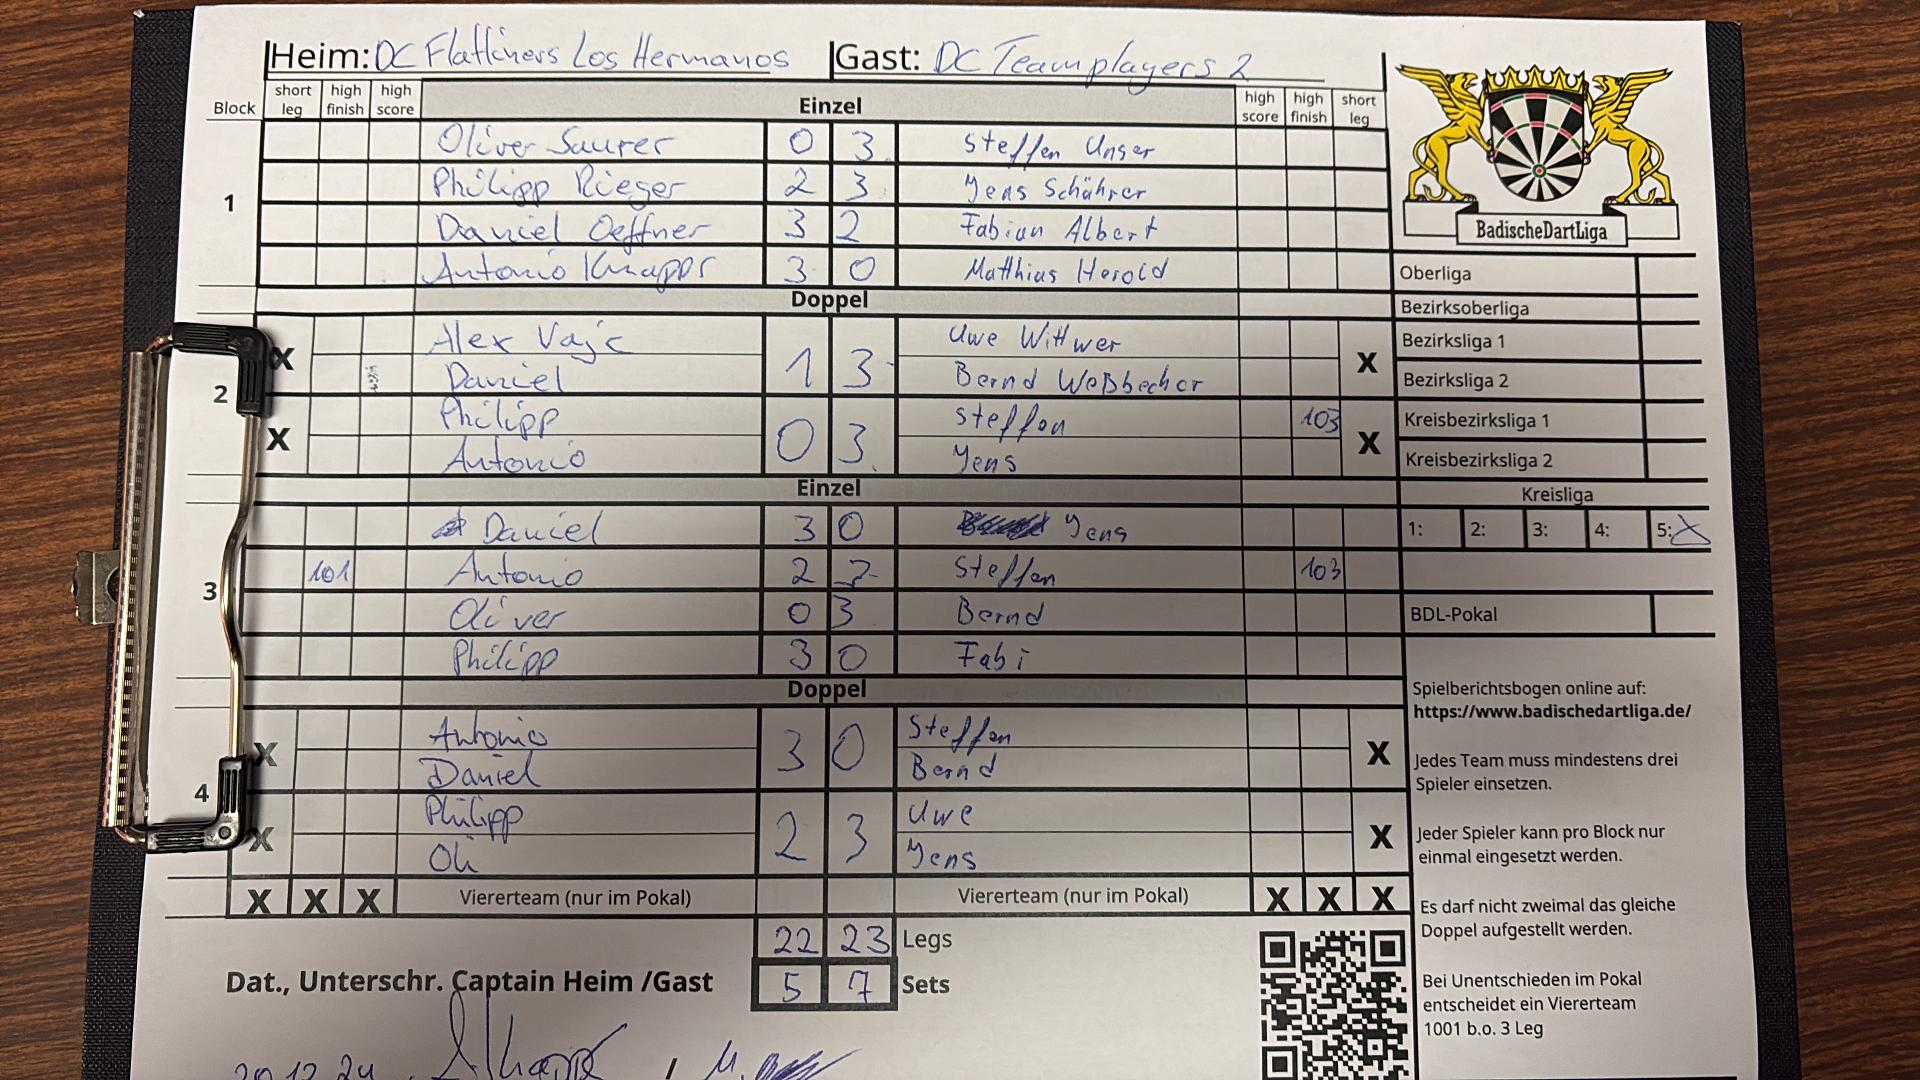 Heim: DC Flatliners Los Hermanos Gast: DC Teamplayers 2
Block short leg high finish high score Einzel high score high finish short leg
1
Oliver Saurer 0 3 Steffen Unser
Philipp Rieger 2 3 Jens Schährer
Daniel Oeffner 3 2 Fabian Albert
Antonio Knappr 3 0 Matthias Herold
Doppel
2
X Alex Vajc 1 3 Uwe Wittwer X
Daniel Bernd Weßbecher
X Philipp 0 3 Steffen 103 X
Antonio Jens
Einzel
3
Daniel 3 0 Jens
101 Antonio 2 3 Steffen 103
Oliver 0 3 Bernd
Philipp 3 0 Fabi
Doppel
4
X Antonio 3 0 Steffen X
Daniel Bernd
X Philipp 2 3 Uwe X
Oli Jens
X X X Viererteam (nur im Pokal) Viererteam (nur im Pokal) X X X
22 23 Legs
Dat., Unterschr. Captain Heim /Gast 5 7 Sets
20.12.24 /
BadischeDartLiga
Oberliga
Bezirksoberliga
Bezirksliga 1
Bezirksliga 2
Kreisbezirksliga 1
Kreisbezirksliga 2
Kreisliga
1: 2: 3: 4: 5: X
BDL-Pokal
Spielberichtsbogen online auf:
https://www.badischedartliga.de/
Jedes Team muss mindestens drei
Spieler einsetzen.
Jeder Spieler kann pro Block nur
einmal eingesetzt werden.
Es darf nicht zweimal das gleiche
Doppel aufgestellt werden.
Bei Unentschieden im Pokal
entscheidet ein Viererteam
1001 b.o. 3 Leg